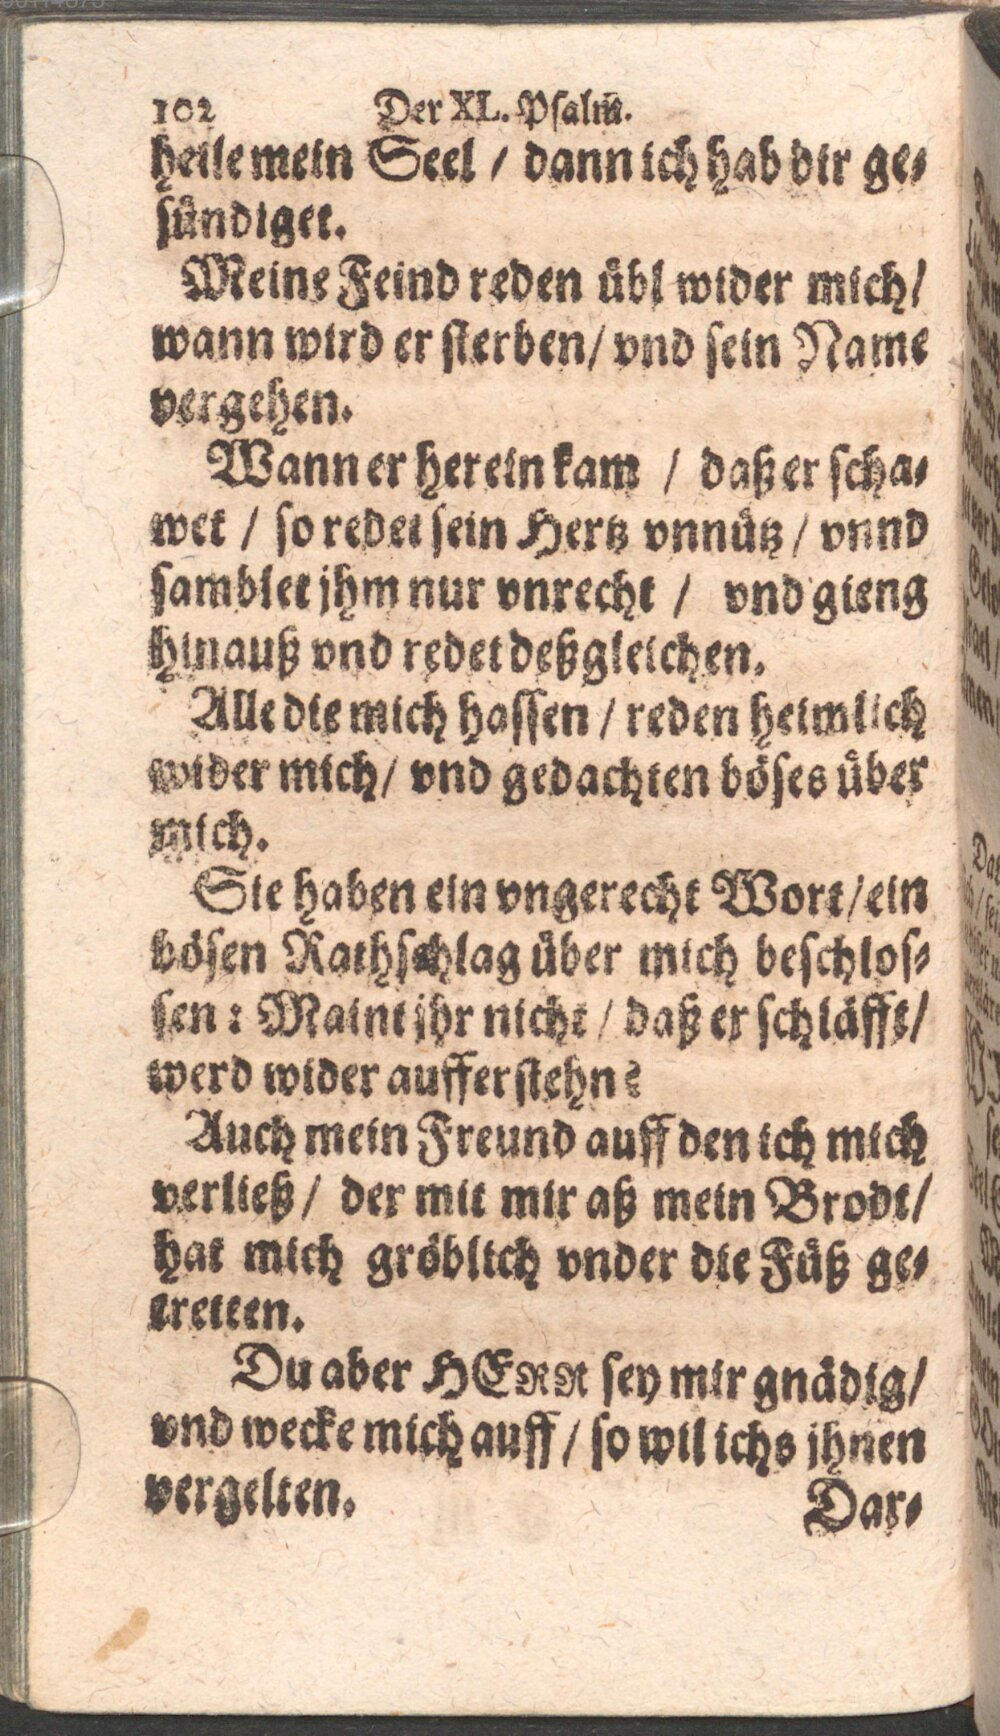 102 Der XL. Psalm̃.
heile mein Seel / dann ich hab dir ge-
sündiget.
Meine Feind reden übl wider mich/
wann wird er sterben/ vnd sein Name
vergehen.
Wann er herein kam / daß er scha-
wet / so redet sein Hertz vnnütz / vnnd
samblet jhm nur vnrecht / vnd gieng
hinauß vnd redet deßgleichen.
Alle die mich hassen / reden heimlich
wider mich/ vnd gedachten böses über
mich.
Sie haben ein vngerecht Wort/ein
bösen Rathschlag über mich beschlos-
sen: Maint jhr nicht / daß er schläfft/
werd wider aufferstehn?
Auch mein Freund auff den ich mich
verließ / der mit mir aß mein Brodt/
hat mich gröblich vnder die Füß ge-
tretten.
Du aber HERR sey mir gnädig/
vnd wecke mich auff / so wil ichs jhnen
vergelten.
Dar-